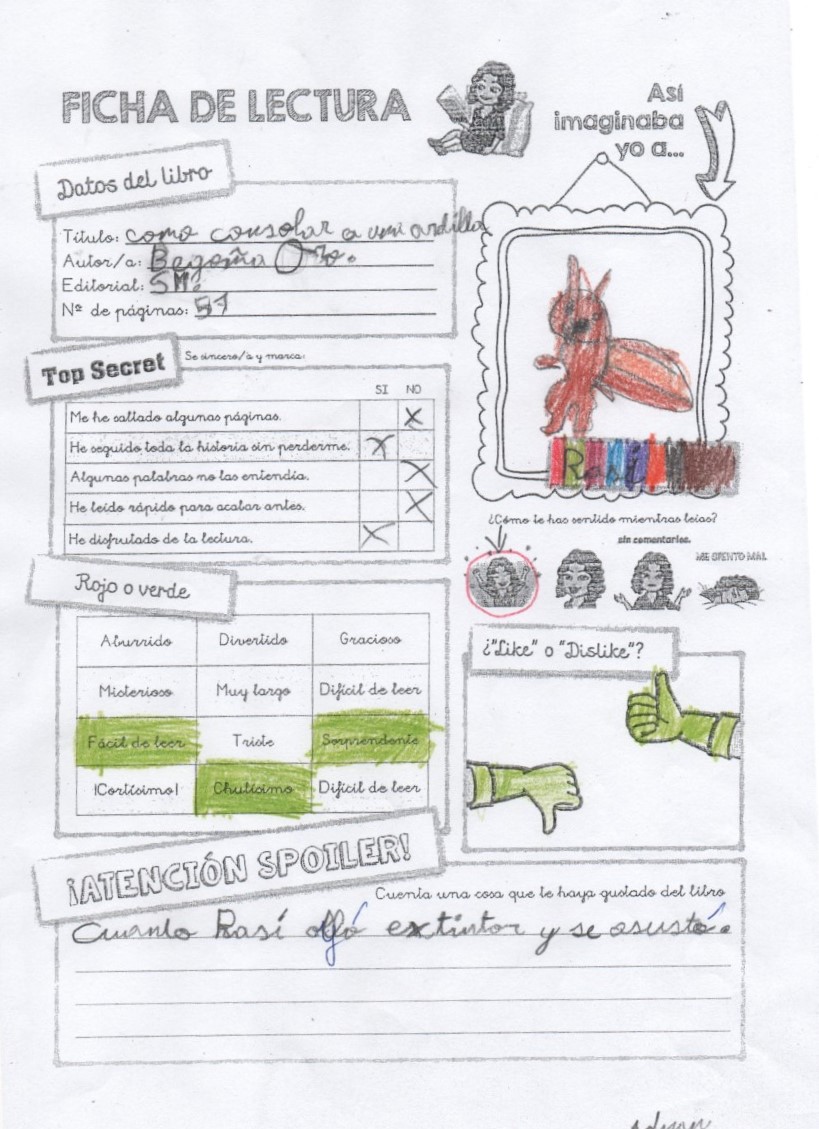 FICHA DE LECTURA
Así
imaginaba
yo a...
Datos del libro
Título: como consolar a una ardilla
Autor/a: Begoña Oro.
Editorial: SM.
Nº de páginas: 57
Rasi
Top Secret
Se sincero/a y marca:
SI NO
Me he saltado algunas páginas. X
He seguido toda la historia sin perderme. X
Algunas palabras no las entendía. X
He leído rápido para acabar antes. X
He disfrutado de la lectura. X
¿Cómo te has sentido mientras leías?
sin comentarios.
ME SIENTO MAL
Rojo o verde
Aburrido Divertido Gracioso
Misterioso Muy largo Difícil de leer
Fácil de leer Triste Sorprendente
¡Cortísimo! Chulísimo Difícil de leer
¿"Like" o "Dislike"?
¡ATENCIÓN SPOILER!
Cuenta una cosa que te haya gustado del libro
Cuando Rasi extintor y se asustó.